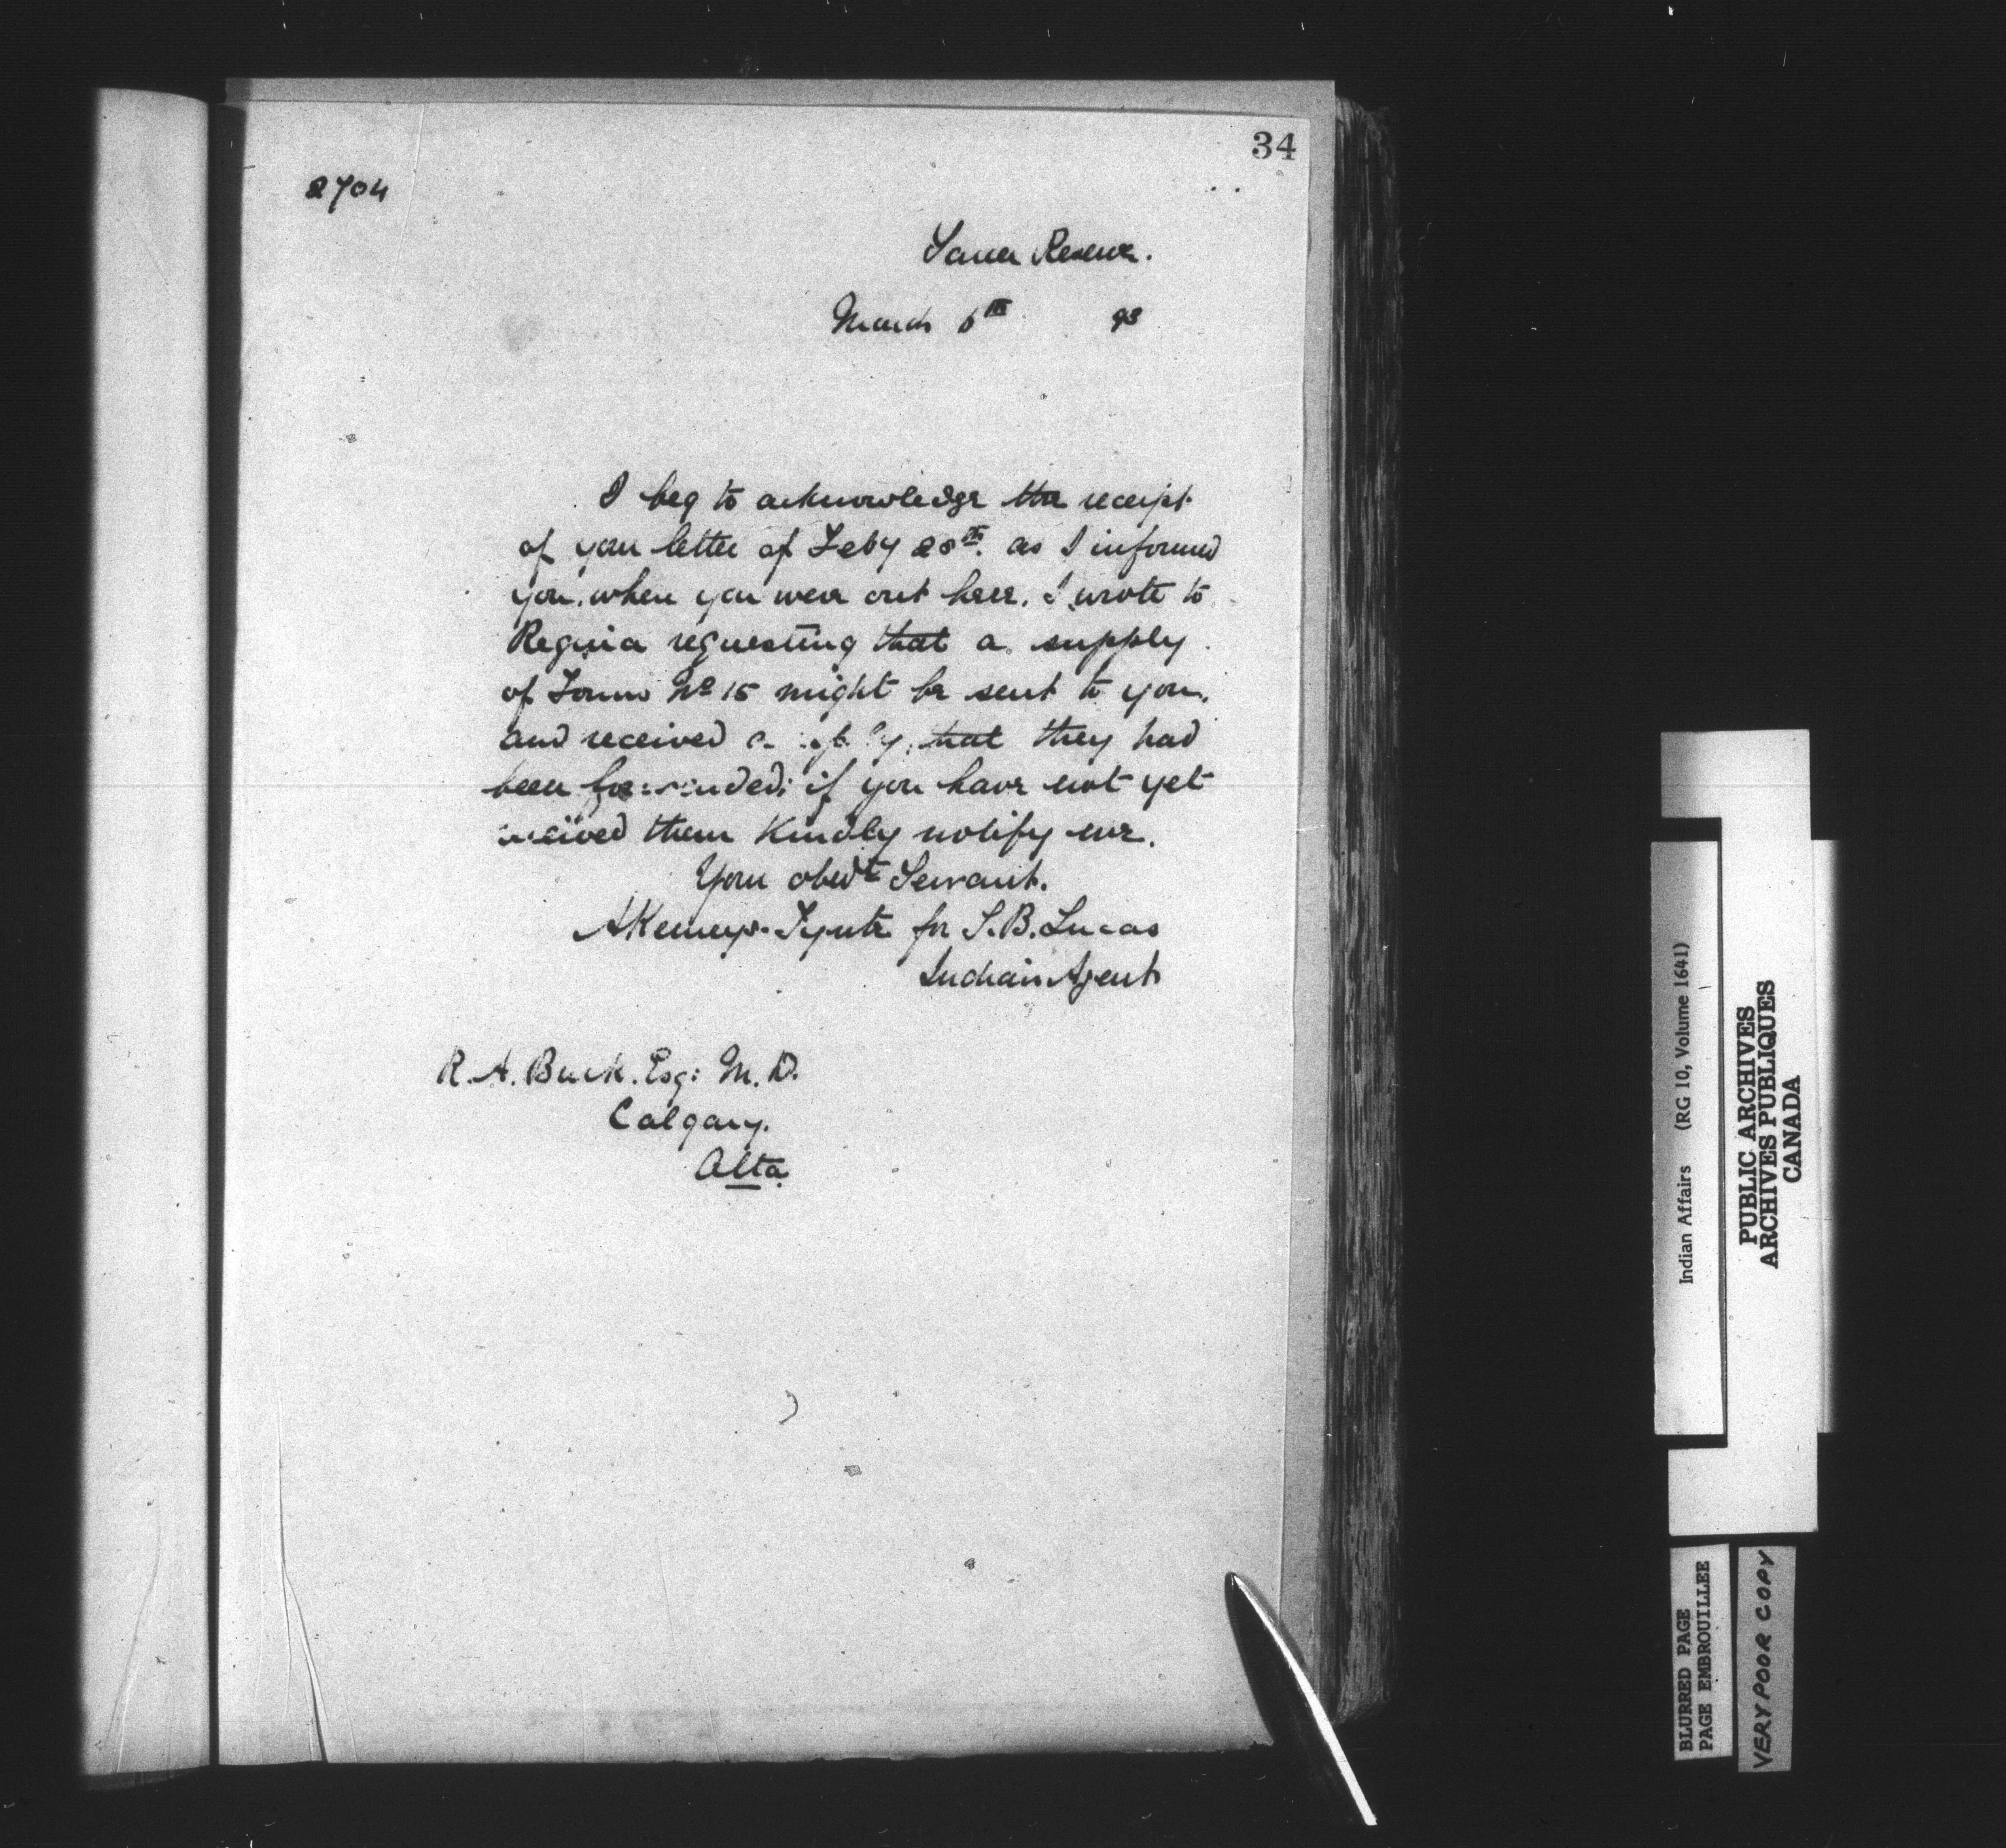 34
2704
Sarcee Reserve.
March 6th 93
I beg to acknowledge the receipt
of your letter of Feby 28th. as I informed
you, when you were out here. I wrote to
Regina requesting that a supply
of Forms No 15 might be sent to you.
and received a reply, that they had
been forwarded; if you have not yet
received them Kindly notify me.
Your obedt Servant.
AKemeys-Tynte for S.B. Lucas
Indian Agent
R. A. Buck. Esq: M.D.
Calgary.
Alta
Indian Affairs (RG 10, Volume 1641)
PUBLIC ARCHIVES
ARCHIVES PUBLIQUES
CANADA
BLURRED PAGE
PAGE EMBROUILLEE
VERY POOR COPY